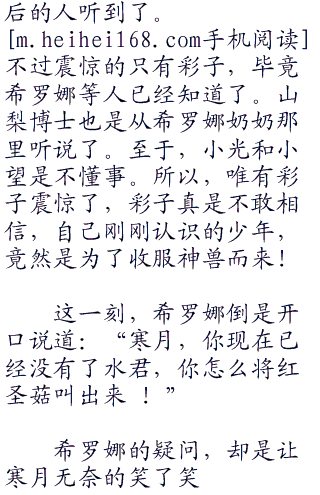 后的人听到了。
[m.heihei168.com手机阅读]
不过震惊的只有彩子，毕竟
希罗娜等人已经知道了。山
梨博士也是从希罗娜奶奶那
里听说了。至于，小光和小
望是不懂事。所以，唯有彩
子震惊了，彩子真是不敢相
信，自己刚刚认识的少年，
竟然是为了收服神兽而来！
这一刻，希罗娜倒是开
口说道：“寒月，你现在已
经没有了水君，你怎么将红
圣菇叫出来 ！”
希罗娜的疑问，却是让
寒月无奈的笑了笑